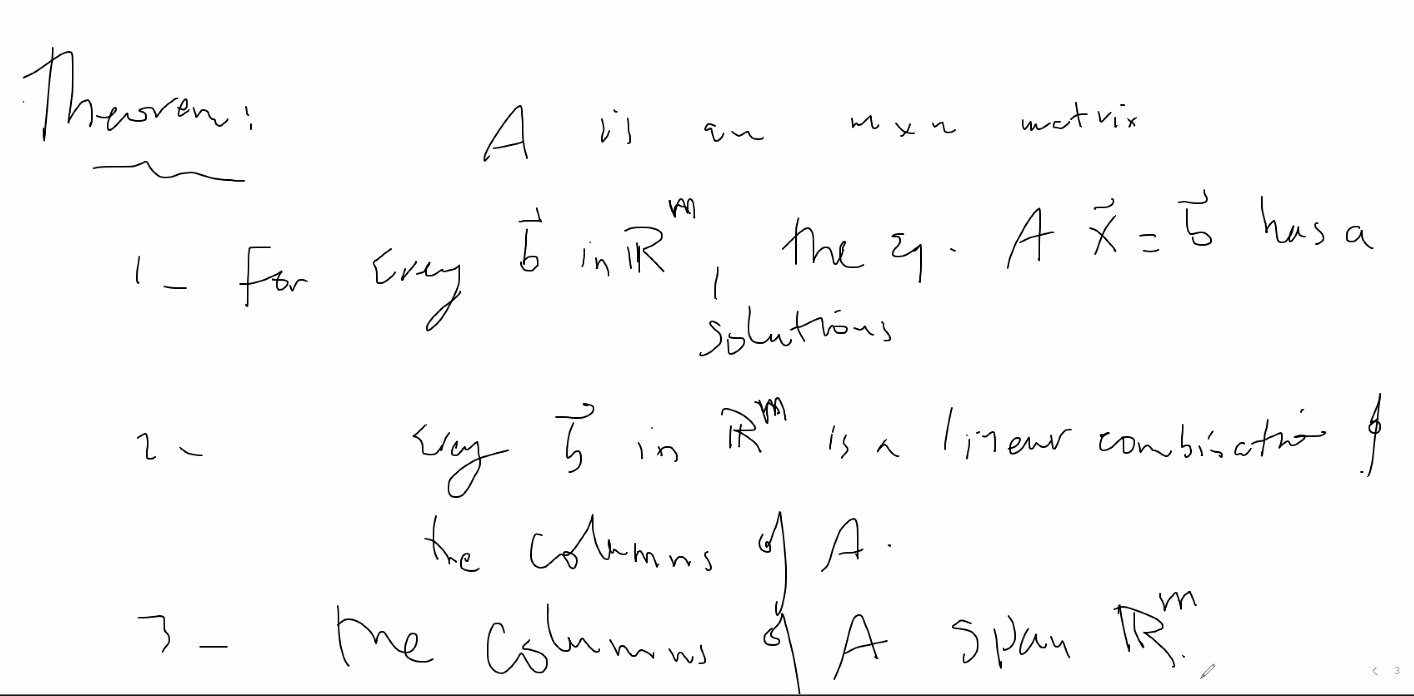 Theorem: A is an m x n matrix
1- For Every b⃗ in ℝᵐ, the eq. A x⃗ = b⃗ has a
solutions
2- Every b⃗ in ℝᵐ is a linear combination of
the columns of A.
3- the columns of A span ℝᵐ.
< 3